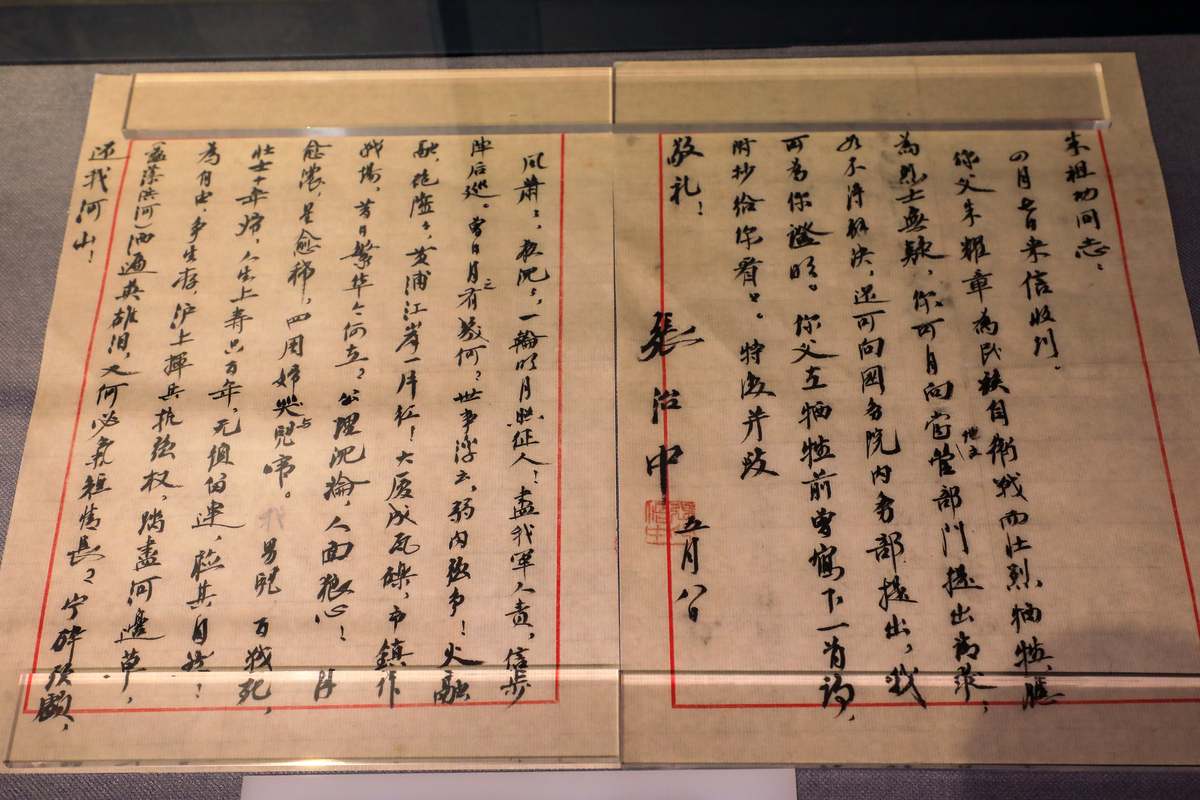 朱祖功同志：
四月七日来信收到。
你父朱耀章为民族自卫战而壮烈牺牲，应
为烈士无疑，你可自向当地主管部门提出要求；
如不得解决，还可向国务院内务部提出，我
可为你证明。你父在牺牲前曾写下一首词，
附抄给你看看。特复并致
敬礼！
张治中
五月八日
风萧萧，夜沉沉，一轮明月照征人！尽我军人责，信步
阵后巡。曾日月之有几何？世事浮云，弱肉强争！火融
融，炮隆隆，黄浦江岸一片红！大厦成瓦砾，市镇作
战场，昔日繁华今何在？公理沉沦，人面狼心！月
愈浓，星愈稀，四周妇哭与儿啼。男儿百战死，
壮士十年归，人生上寿只百年，无须留连，
为自由，争生存，沪上挥兵抗强权，踏尽河边草，
（蕰藻浜河）洒遍英雄泪，又何必气短情长？宁碎头颅，
还我河山！